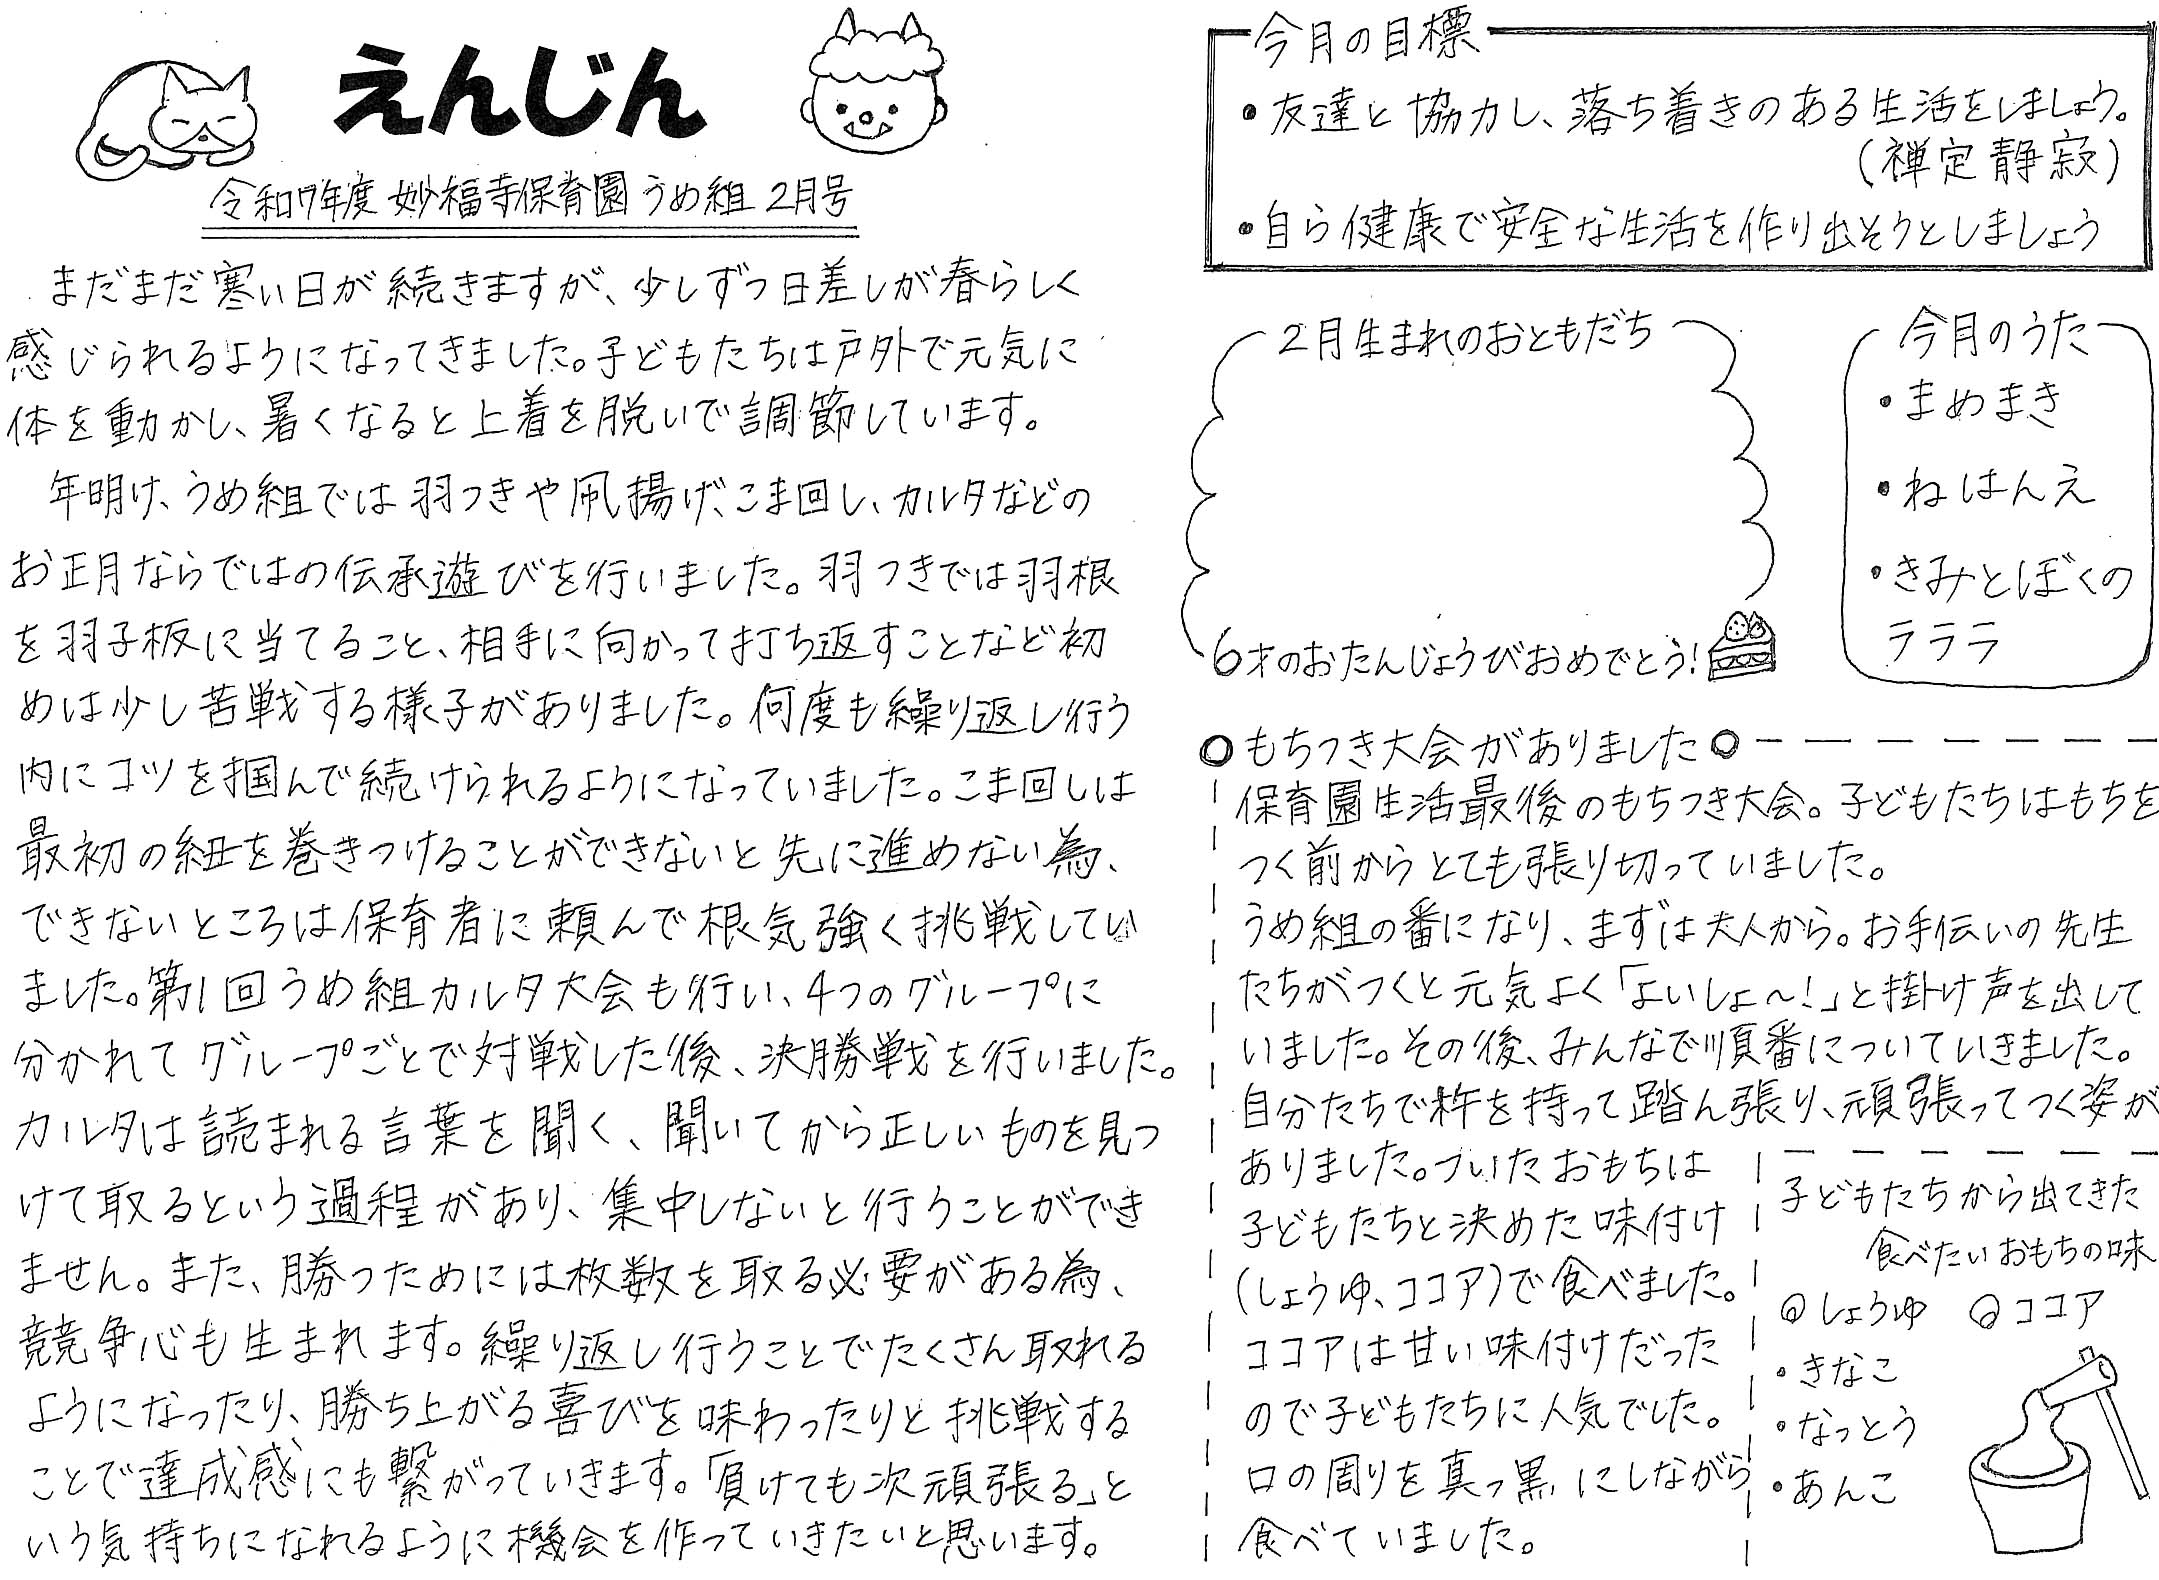 えんじん
令和7年度 妙福寺保育園 うめ組 2月号
まだまだ寒い日が続きますが、少しずつ日差しが春らしく
感じられるようになってきました。子どもたちは戸外で元気に
体を動かし、暑くなると上着を脱いで調節しています。
年明け、うめ組では羽つきや凧揚げ、こま回し、カルタなどの
お正月ならではの伝承遊びを行いました。羽つきでは羽根
を羽子板に当てること、相手に向かって打ち返すことなど初
めは少し苦戦する様子がありました。何度も繰り返し行う
内にコツを掴んで続けられるようになっていました。こま回しは
最初の紐を巻きつけることができないと先に進めない為、
できないところは保育者に頼んで根気強く挑戦してい
ました。第1回うめ組カルタ大会も行い、4つのグループに
分かれてグループごとで対戦した後、決勝戦を行いました。
カルタは読まれる言葉を聞く、聞いてから正しいものを見つ
けて取るという過程があり、集中しないと行うことができ
ません。また、勝つためには枚数を取る必要がある為、
競争心も生まれます。繰り返し行うことでたくさん取れる
ようになったり、勝ち上がる喜びを味わったりと挑戦する
ことで達成感にも繋がっていきます。「負けても次頑張る」と
いう気持ちになれるように機会を作っていきたいと思います。
今月の目標
・友達と協力し、落ち着きのある生活をしましょう。
(禅定静寂)
・自ら健康で安全な生活を作り出そうとしましょう
2月生まれのおともだち
6才のおたんじょうびおめでとう!
今月のうた
・まめまき
・ねはんえ
・きみとぼくの
ラララ
◎もちつき大会がありました◎
保育園生活最後のもちつき大会。子どもたちはもちを
つく前からとても張り切っていました。
うめ組の番になり、まずは大人から。お手伝いの先生
たちがつくと元気よく「よいしょ〜!」と掛け声を出して
いました。その後、みんなで順番についていきました。
自分たちで杵を持って踏ん張り、頑張ってつく姿が
ありました。ついたおもちは
子どもたちと決めた味付け
(しょうゆ、ココア)で食べました。
ココアは甘い味付けだった
ので子どもたちに人気でした。
口の周りを真っ黒にしながら
食べていました。
子どもたちから出てきた
食べたいおもちの味
◎しょうゆ ◎ココア
・きなこ
・なっとう
・あんこ